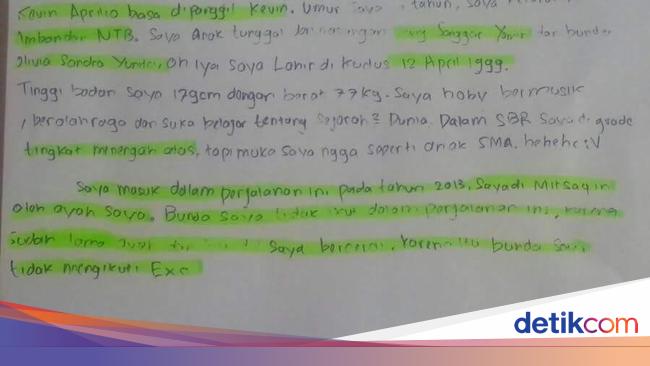 Kevin Aprilio basa dipanggil Kevin. Umur saya tahun, saya
Ambandar NTB. Saya Anak tunggal dari Yang
olivia Sandra oh iya saya Lahir di Kudus 12 April 1999.
Tinggi badan saya 179cm dengan berat 77kg. Saya hoby bermusik
, berolahraga dan suka belajar tentang Sejarah² Dunia. Dalam SBR Saya di grade
tingkat menengah atas, tapi muka saya ngga seperti anak SMA. hehehe :V
Saya masuk dalam perjalanan ini pada tahun 2013, Saya di Mitsaq in
oleh ayah saya. Bunda saya tidak ikut dalam perjalanan ini, karena
sudah lama saya bercerai. karena itu bunda saya
tidak mengikuti Exc
detikcom